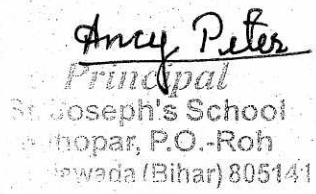 Ancy Peter
Principal
St. Joseph's School
hopar, P.O.-Roh
wada (Bihar) 805141